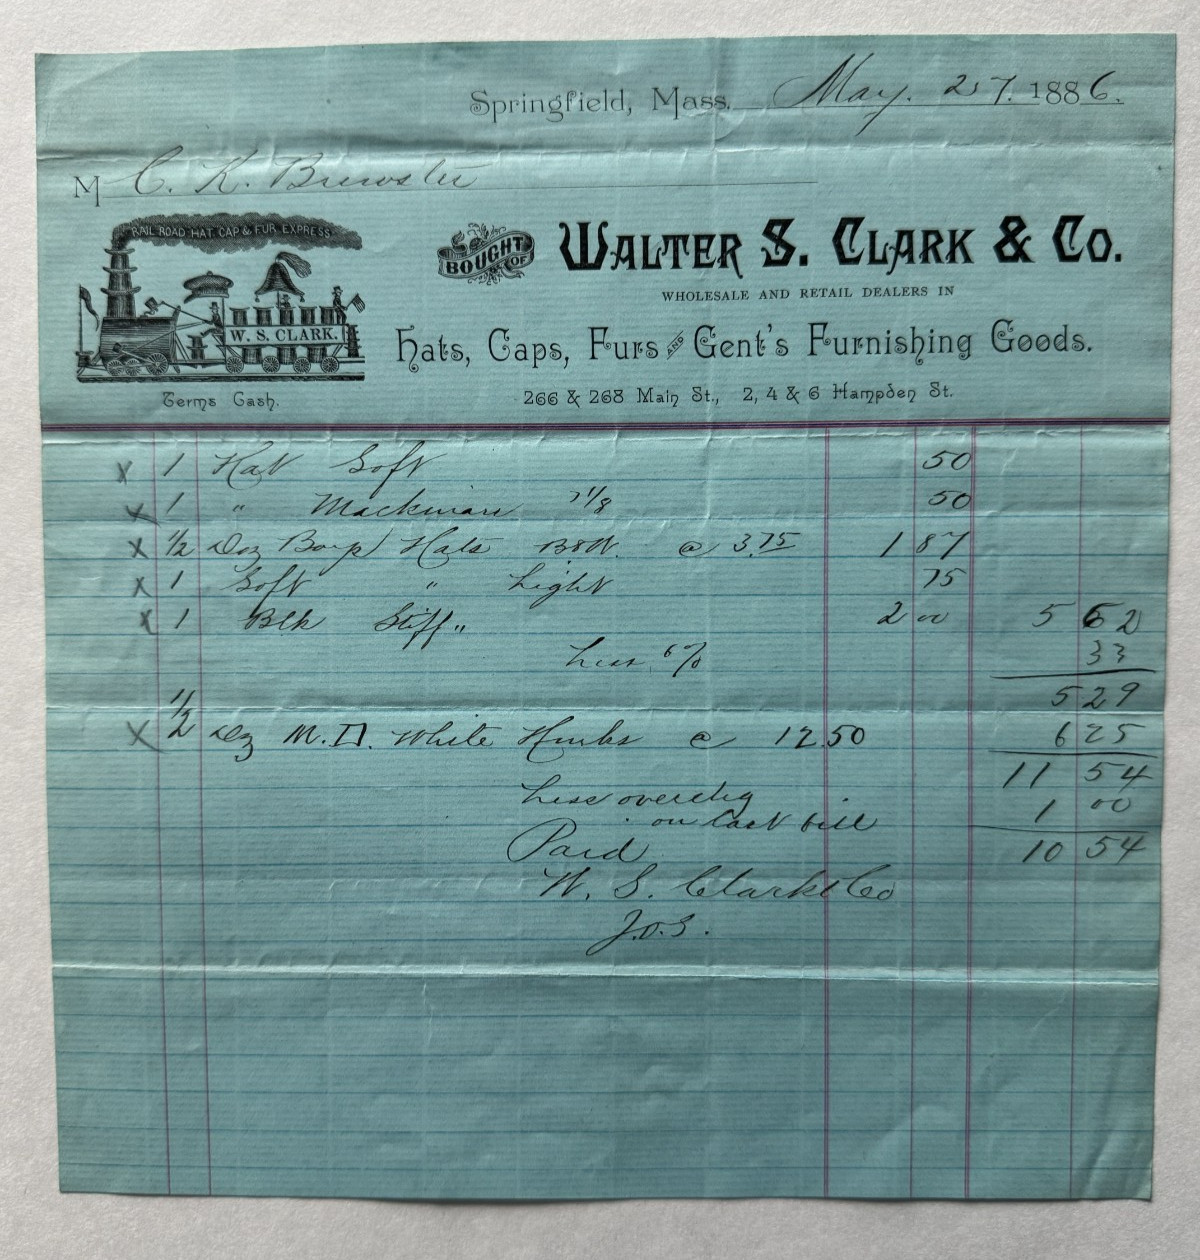 Springfield, Mass. May. 27. 1886.
M C. K. Brewster
RAIL ROAD HAT CAP & FUR EXPRESS
W. S. CLARK.
Terms Cash.
BOUGHT OF WALTER S. CLARK & CO.
WHOLESALE AND RETAIL DEALERS IN
Hats, Caps, Furs AND Gent's Furnishing Goods.
266 & 268 Main St., 2, 4 & 6 Hampden St.
x 1 Hat Soft 50
x 1 " Mackinaw 7 1/8 50
x 1/2 Doz Boys Hats @ 3.75 1 87
x 1 Soft " Light 75
x 1 Blk Stiff " 2 00 5 62
Less 6% 33
5 29
x 1/2 Doz M.D. White @ 12.50 6 25
11 54
Less overchg
on last bill 1 00
Paid 10 54
W. S. Clark & Co
J.O.S.